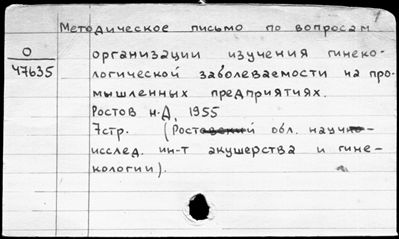 Методическое письмо по вопросам
О
47635
организации изучения гинеко-
логической заболеваемости на про-
мышленных предприятиях.
Ростов н-Д, 1955
7стр. (Ростовский обл. научно-
исслед. ин-т акушерства и гине-
кологии).